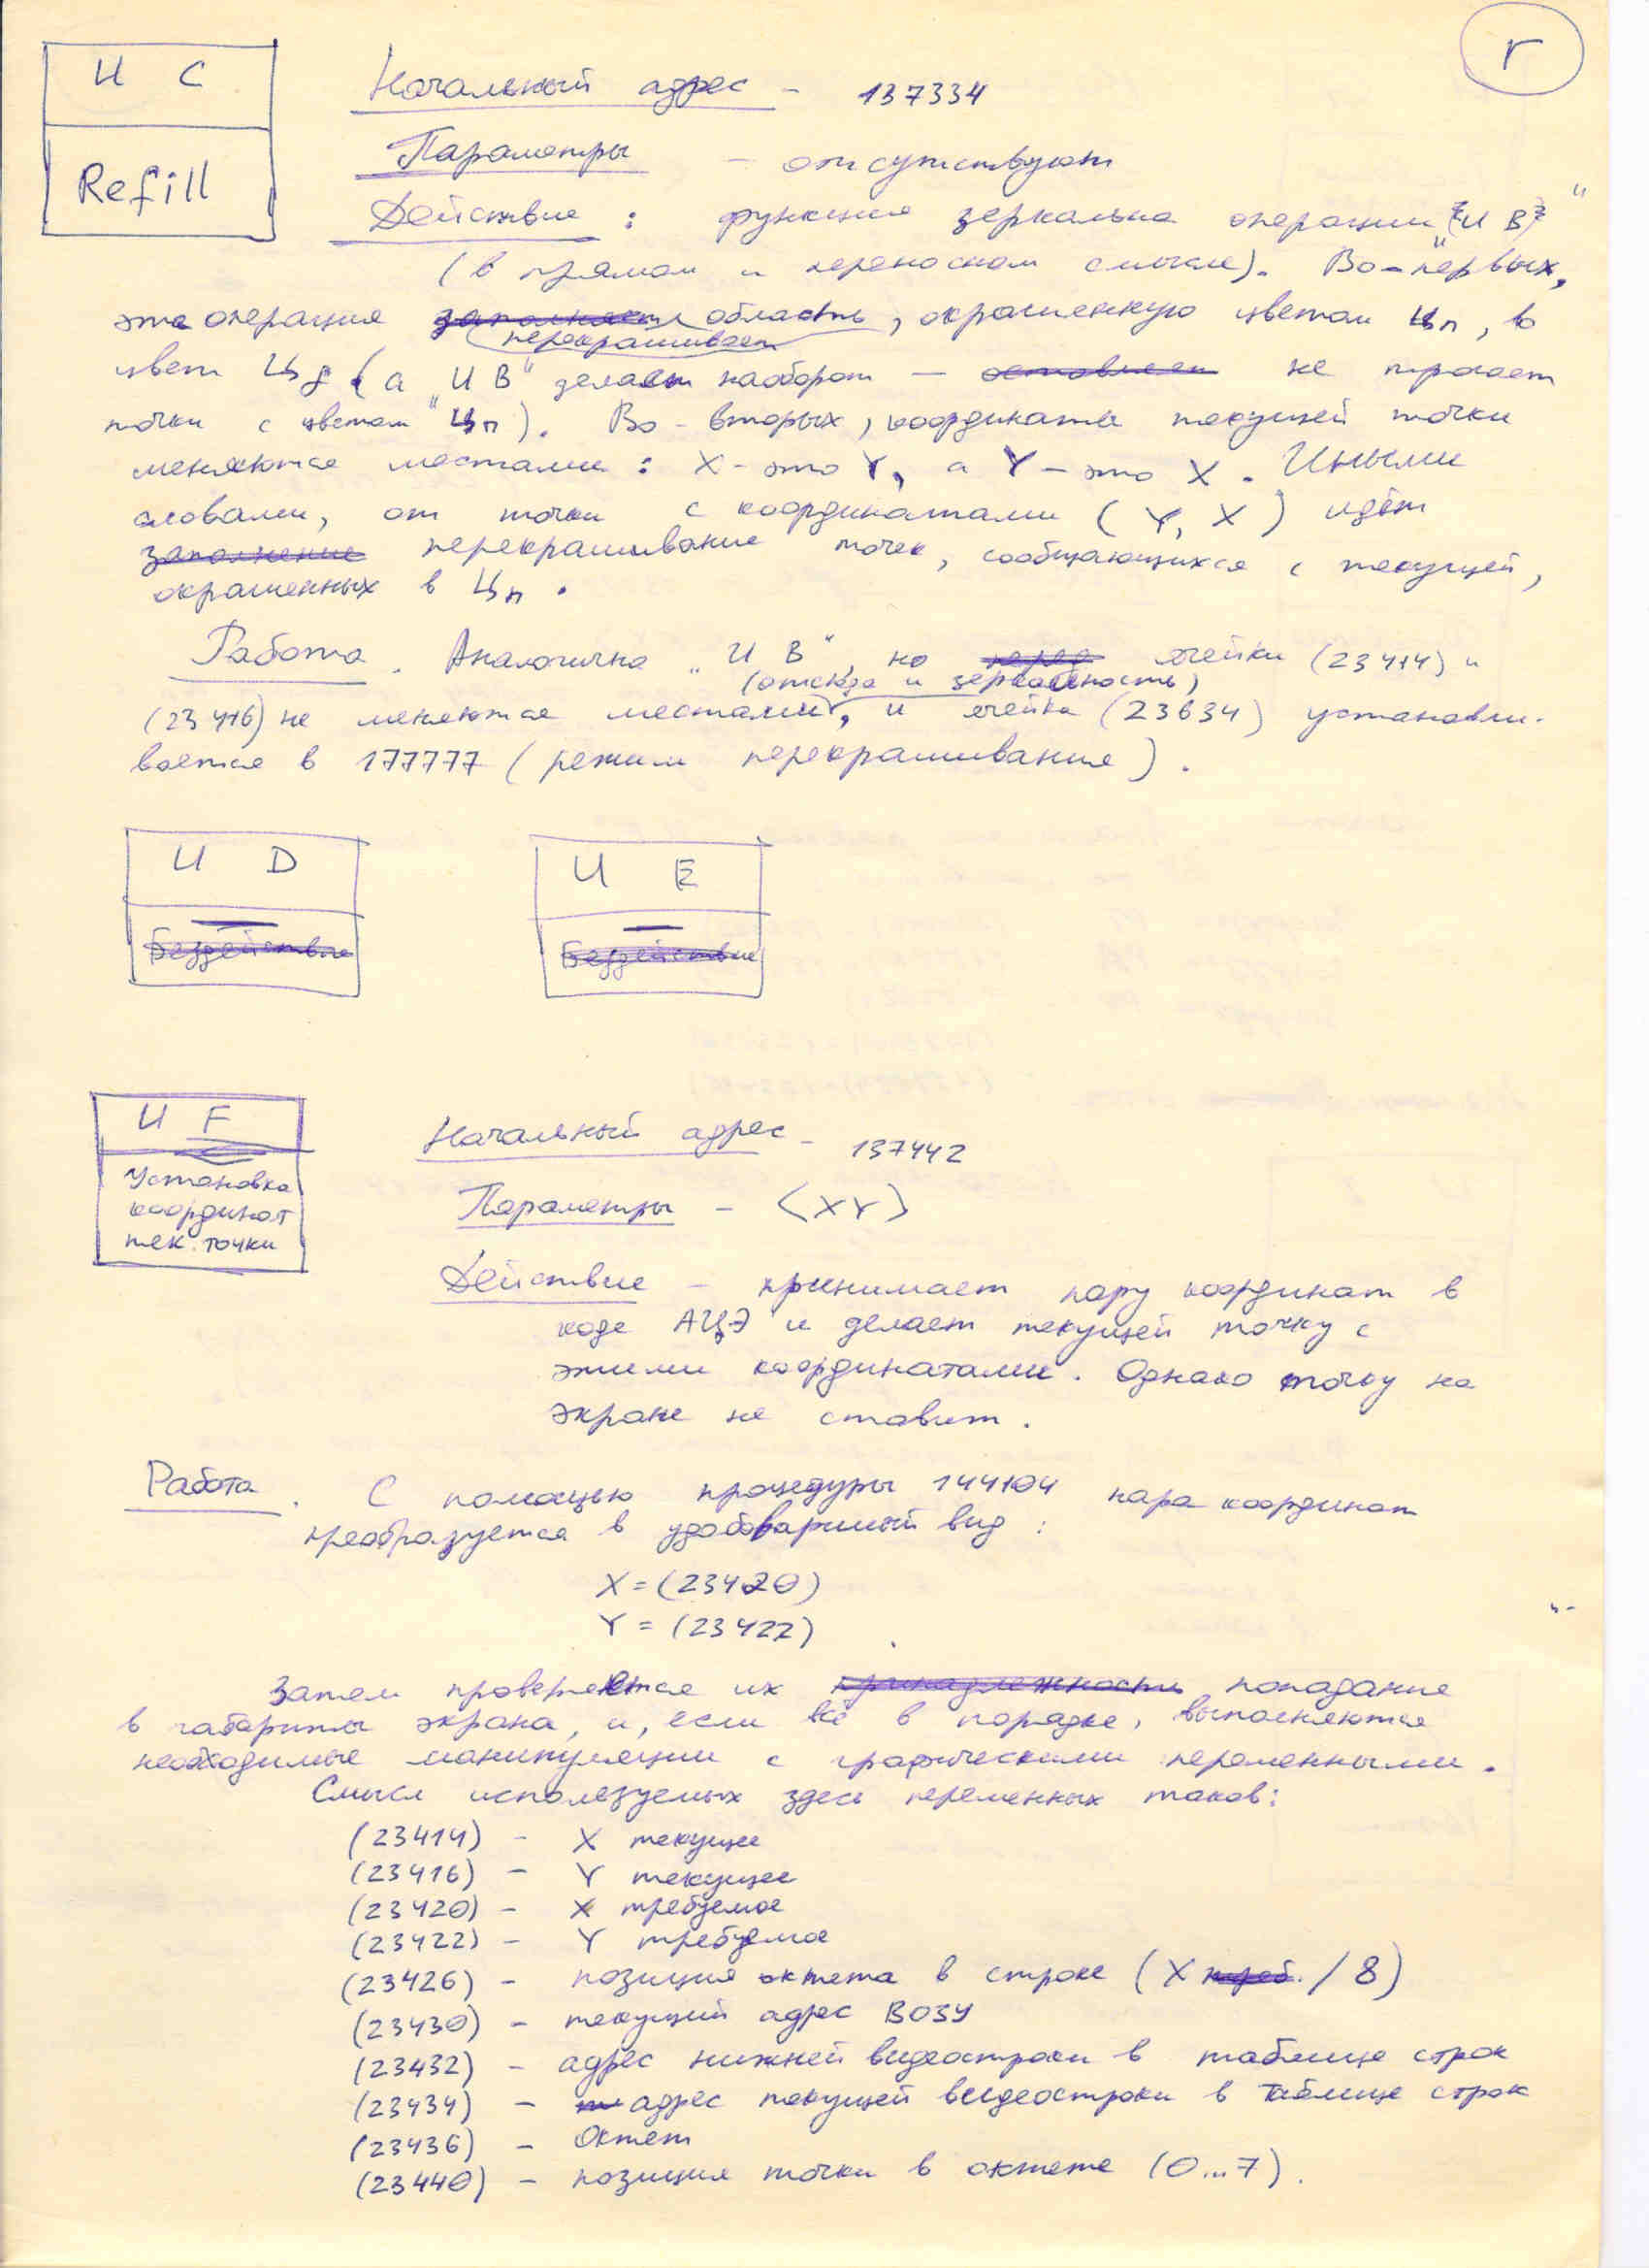 г
И С
Refill
Начальный адрес - 137334
Параметры - отсутствуют
Действие : функция зеркальна операции "И В"
(в прямом и переносном смысле). Во-первых,
эта операция заполняет область, окрашенную цветом Цп, в
перекрашивает
цвет Ц (а "И В" делает наоборот - не трогает
точки с цветом "Цп). Во-вторых, координаты текущей точки
меняются местами : X - это Y, а Y - это X. Иными
словами, от точки с координатами (Y, X) идёт
заполнение перекрашивание точек, сообщающихся с текущей,
окрашенных в Цп.
Работа. Аналогична "И В", но ячейки (23414) и
(отсюда и зеркальность)
(23416) не меняются местами, и ячейка (23634) устанавли-
вается в 177777 (режим перекрашивания).
И D
Бездействие
И E
Бездействие
И F
Установка
координат
тек. точки
Начальный адрес - 137442
Параметры - <XY>
Действие - принимает пару координат в
коде АЦЭ и делает текущей точку с
этими координатами. Однако точку на
экране не ставит.
Работа. С помощью процедуры 144104 пара координат
преобразуется в удобоваримый вид :
X = (23420)
Y = (23422)
Затем проверяется их принадлежность попадание
в габариты экрана, и, если всё в порядке, выполняются
необходимые манипуляции с графическими переменными.
Смысл используемых здесь переменных таков:
(23414) - X текущее
(23416) - Y текущее
(23420) - X требуемое
(23422) - Y требуемое
(23426) - позиция октета в строке (X треб. / 8)
(23430) - текущий адрес ВОЗУ
(23432) - адрес нижней видеостроки в таблице строк
(23434) - адрес текущей видеостроки в таблице строк
(23436) - Октет
(23440) - позиция точки в октете (0...7).